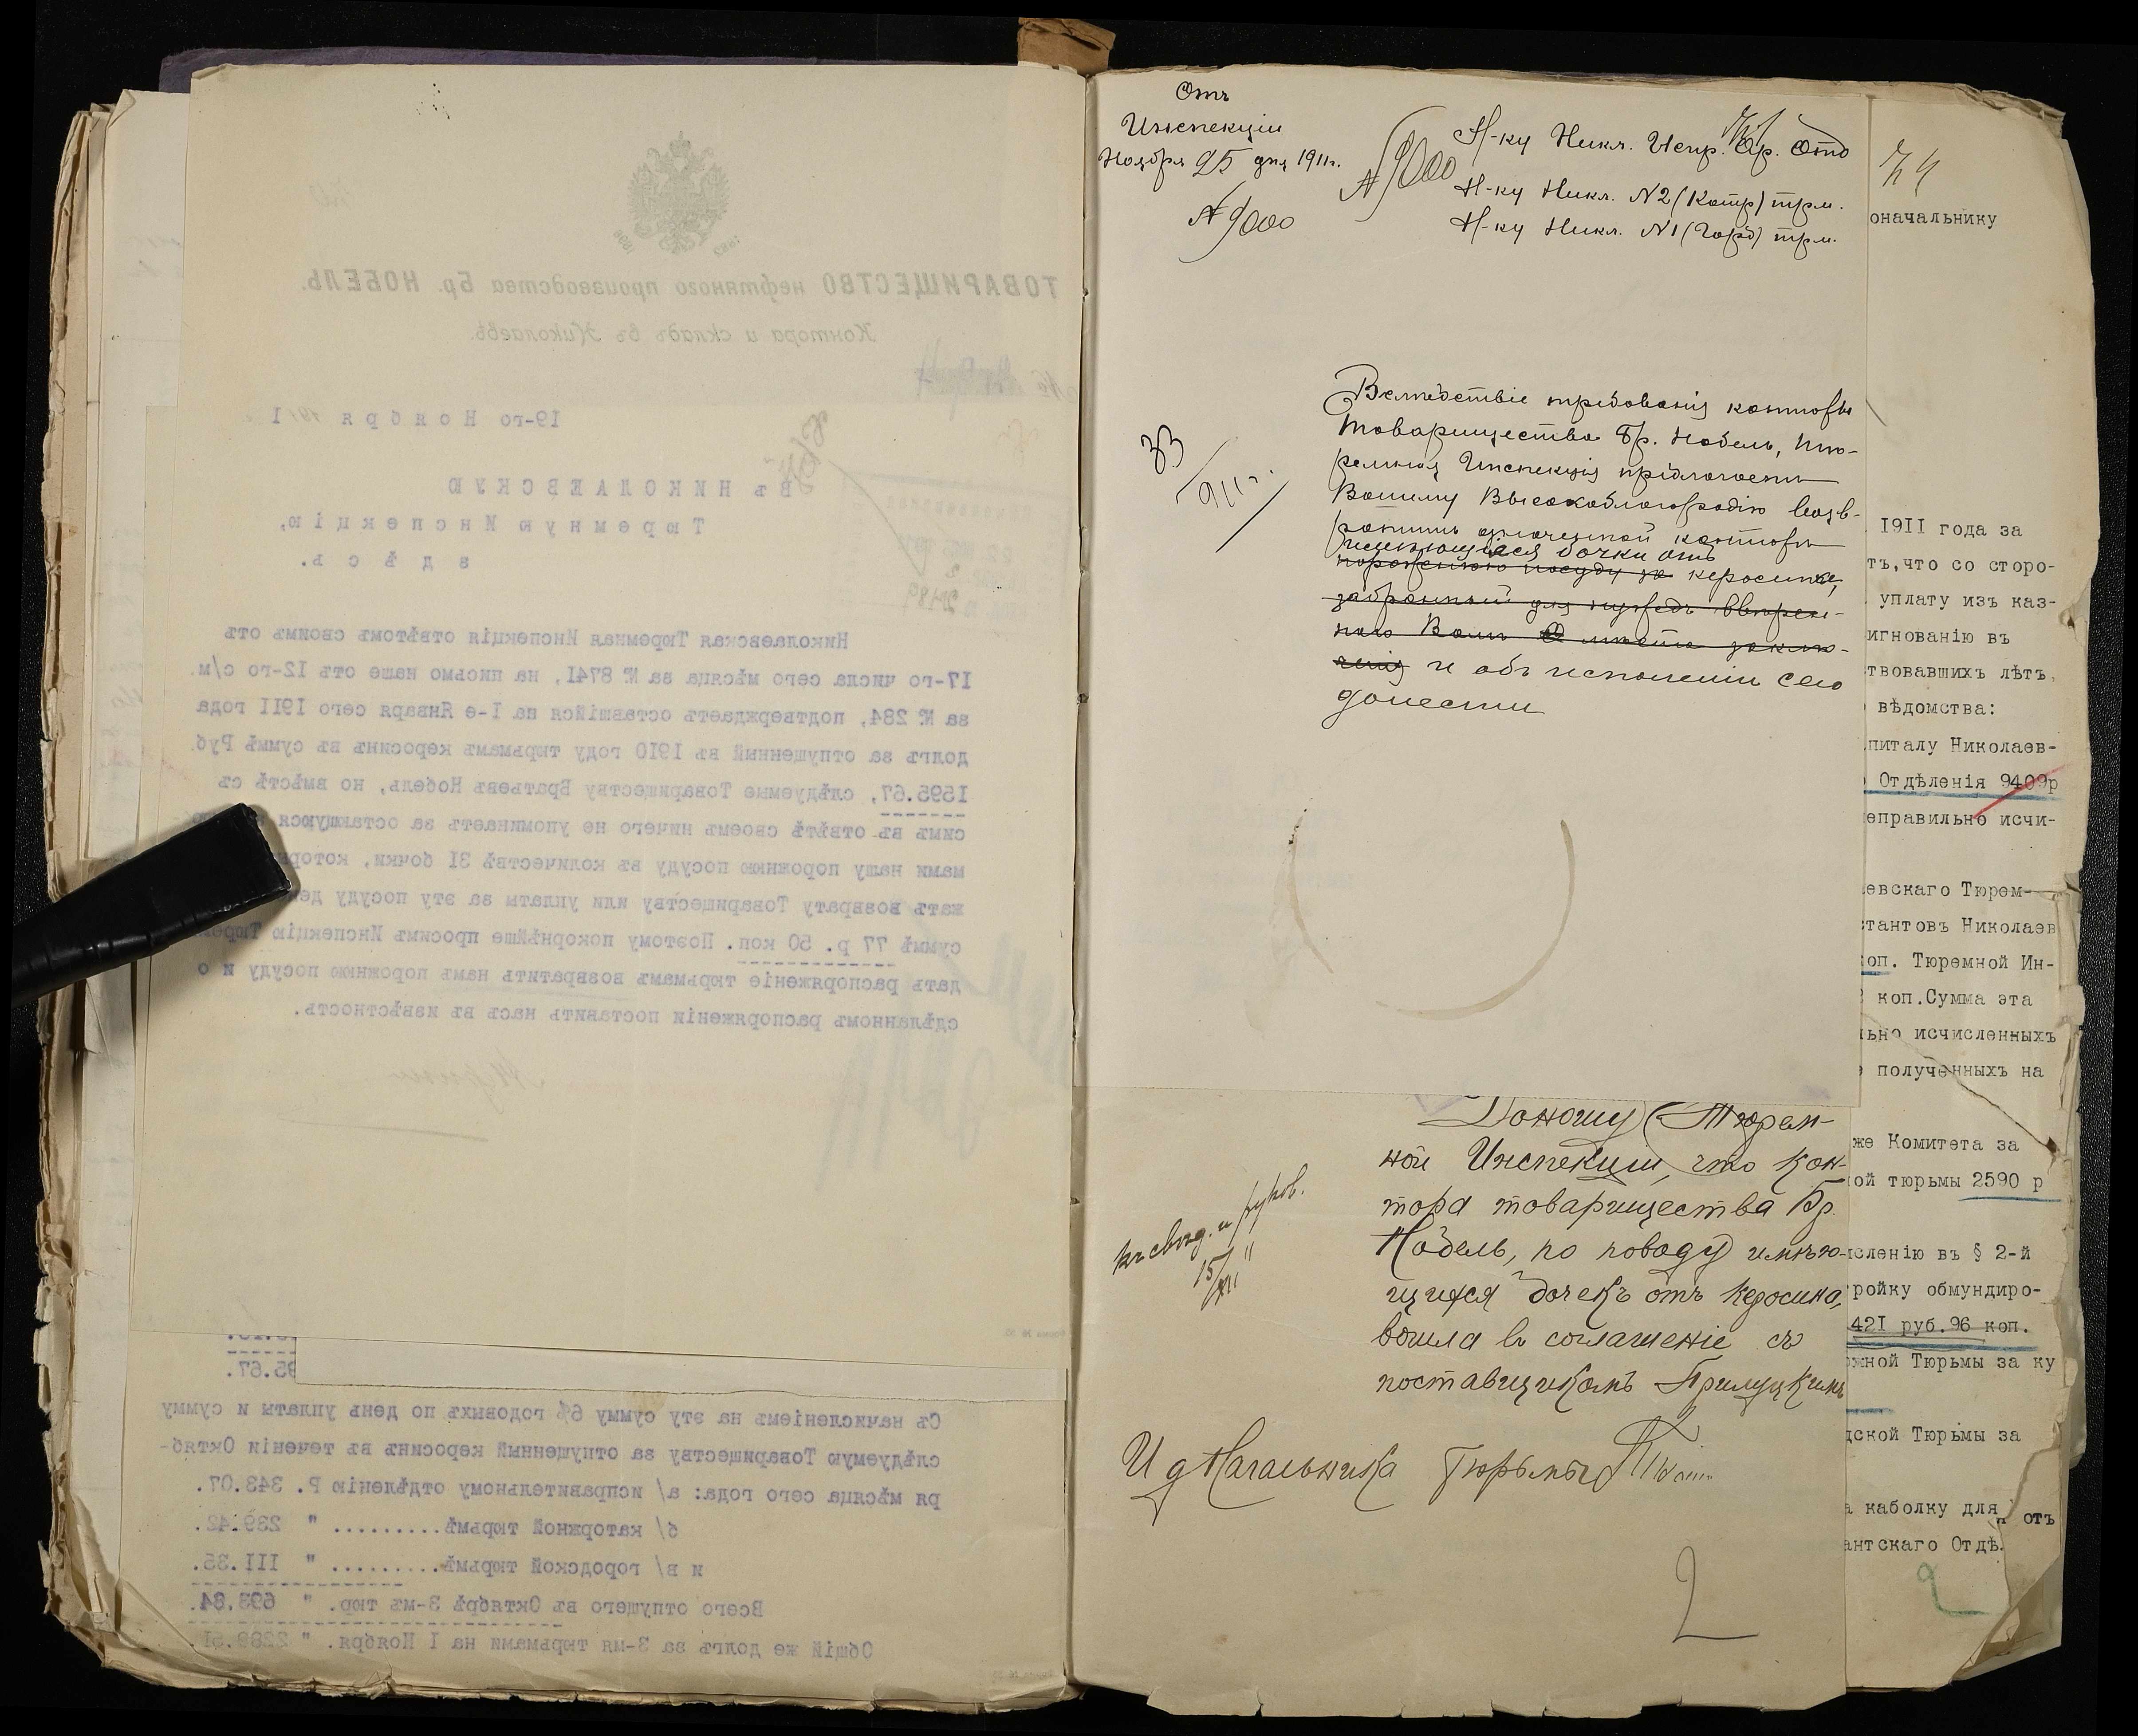 ТОВАРИЩЕСТВО нефтяного производства Бр. НОБЕЛЬ.
Контора и складъ въ Николаевѣ.
19-го Ноября 1911
Въ НИКОЛАЕВСКУЮ
Тюремную Инспекцію,
здѣсь.
Николаевская Тюремная Инспекція отвѣтомъ своимъ отъ
17-го числа сего мѣсяца за № 8741, на письмо наше отъ 12-го с/м.
за № 284, подтверждаетъ оставшійся на 1-е Января сего 1911 года
долгъ за отпущенный въ 1910 году тюрьмамъ керосинъ въ суммѣ Руб.
1595.67, слѣдуемые Товариществу Братьевъ Нобель, но вмѣстѣ съ
симъ въ отвѣтѣ своемъ ничего не упоминаетъ за остающуюся
мами нашу порожнюю посуду въ количествѣ 31 бочки, котор
жатъ возврату Товариществу или уплаты за эту посуду де
суммѣ 77 р. 50 коп. Поэтому покорнѣйше просимъ Инспекцію Тюрем
дать распоряженіе тюрьмамъ возвратить намъ порожнюю посуду и о
сдѣланномъ распоряженіи поставить насъ въ извѣстность.
95.67.
Съ начисленіемъ на эту сумму 6% годовыхъ по день уплаты и сумму
слѣдуемую Товариществу за отпущенный керосинъ въ теченіи Октяб-
ря мѣсяца сего года: а/ исправительному отдѣленію Р. 343.07.
б/ каторжной тюрьмѣ......... " 239.42.
и в/ городской тюрьмѣ......... " 111.35.
Всего отпущего въ Октябрѣ 3-мъ тюр. " 693.84.
Общій же долгъ за 3-мя тюрьмами на 1 Ноября. " 2289.51.
Отъ
Инспекціи
Ноября 25 дня 1911г.
№ 9000
№ 9000
Н-ку Никл. Испр. Ар. Отд
Н-ку Никл. №2 (Катр) трм.
Н-ку Никл. №1 (Горд) трм.
Вслѣдствіе требованія конторы
Товарищества Бр. Нобель, Тю-
ремная Инспекція предлагаетъ
Вашему Высокоблагородію возв-
ратить означенной конторѣ
имеющіяся бочки отъ
порожнюю посуду за керосина,
забранный для нуждъ ввѣрен-
наго Вамъ мѣста заклю-
ченія и объ исполненіи сего
донести
33
911г.
Доношу Тюрем-
ной Инспекціи, что кон-
тора товарищества Бр.
Нобель, по поводу имѣю-
щихся бочекъ отъ керосина,
вошла въ соглашеніе съ
поставщикомъ Прилуцкимъ
къ свѣд. и руков.
15/XII 11
И д Начальника Тюрьмы
2
74
оначальнику
1911 года за
тъ, что со сторо-
уплату изъ каз-
игнованію въ
твовавшихъ лѣтъ,
вѣдомства:
питалу Николаев-
Отдѣленія 9409р
еправильно исчи-
евскаго Тюрем-
стантовъ Николаев
оп. Тюремной Ин-
коп. Сумма эта
льно исчисленныхъ
полученныхъ на
же Комитета за
ой тюрьмы 2590 р
исленію въ § 2-й
ройку обмундиро-
421 руб. 96 коп.
жной Тюрьмы за ку
дской Тюрьмы за
а каболку для
отъ
антскаго Отдѣ
2